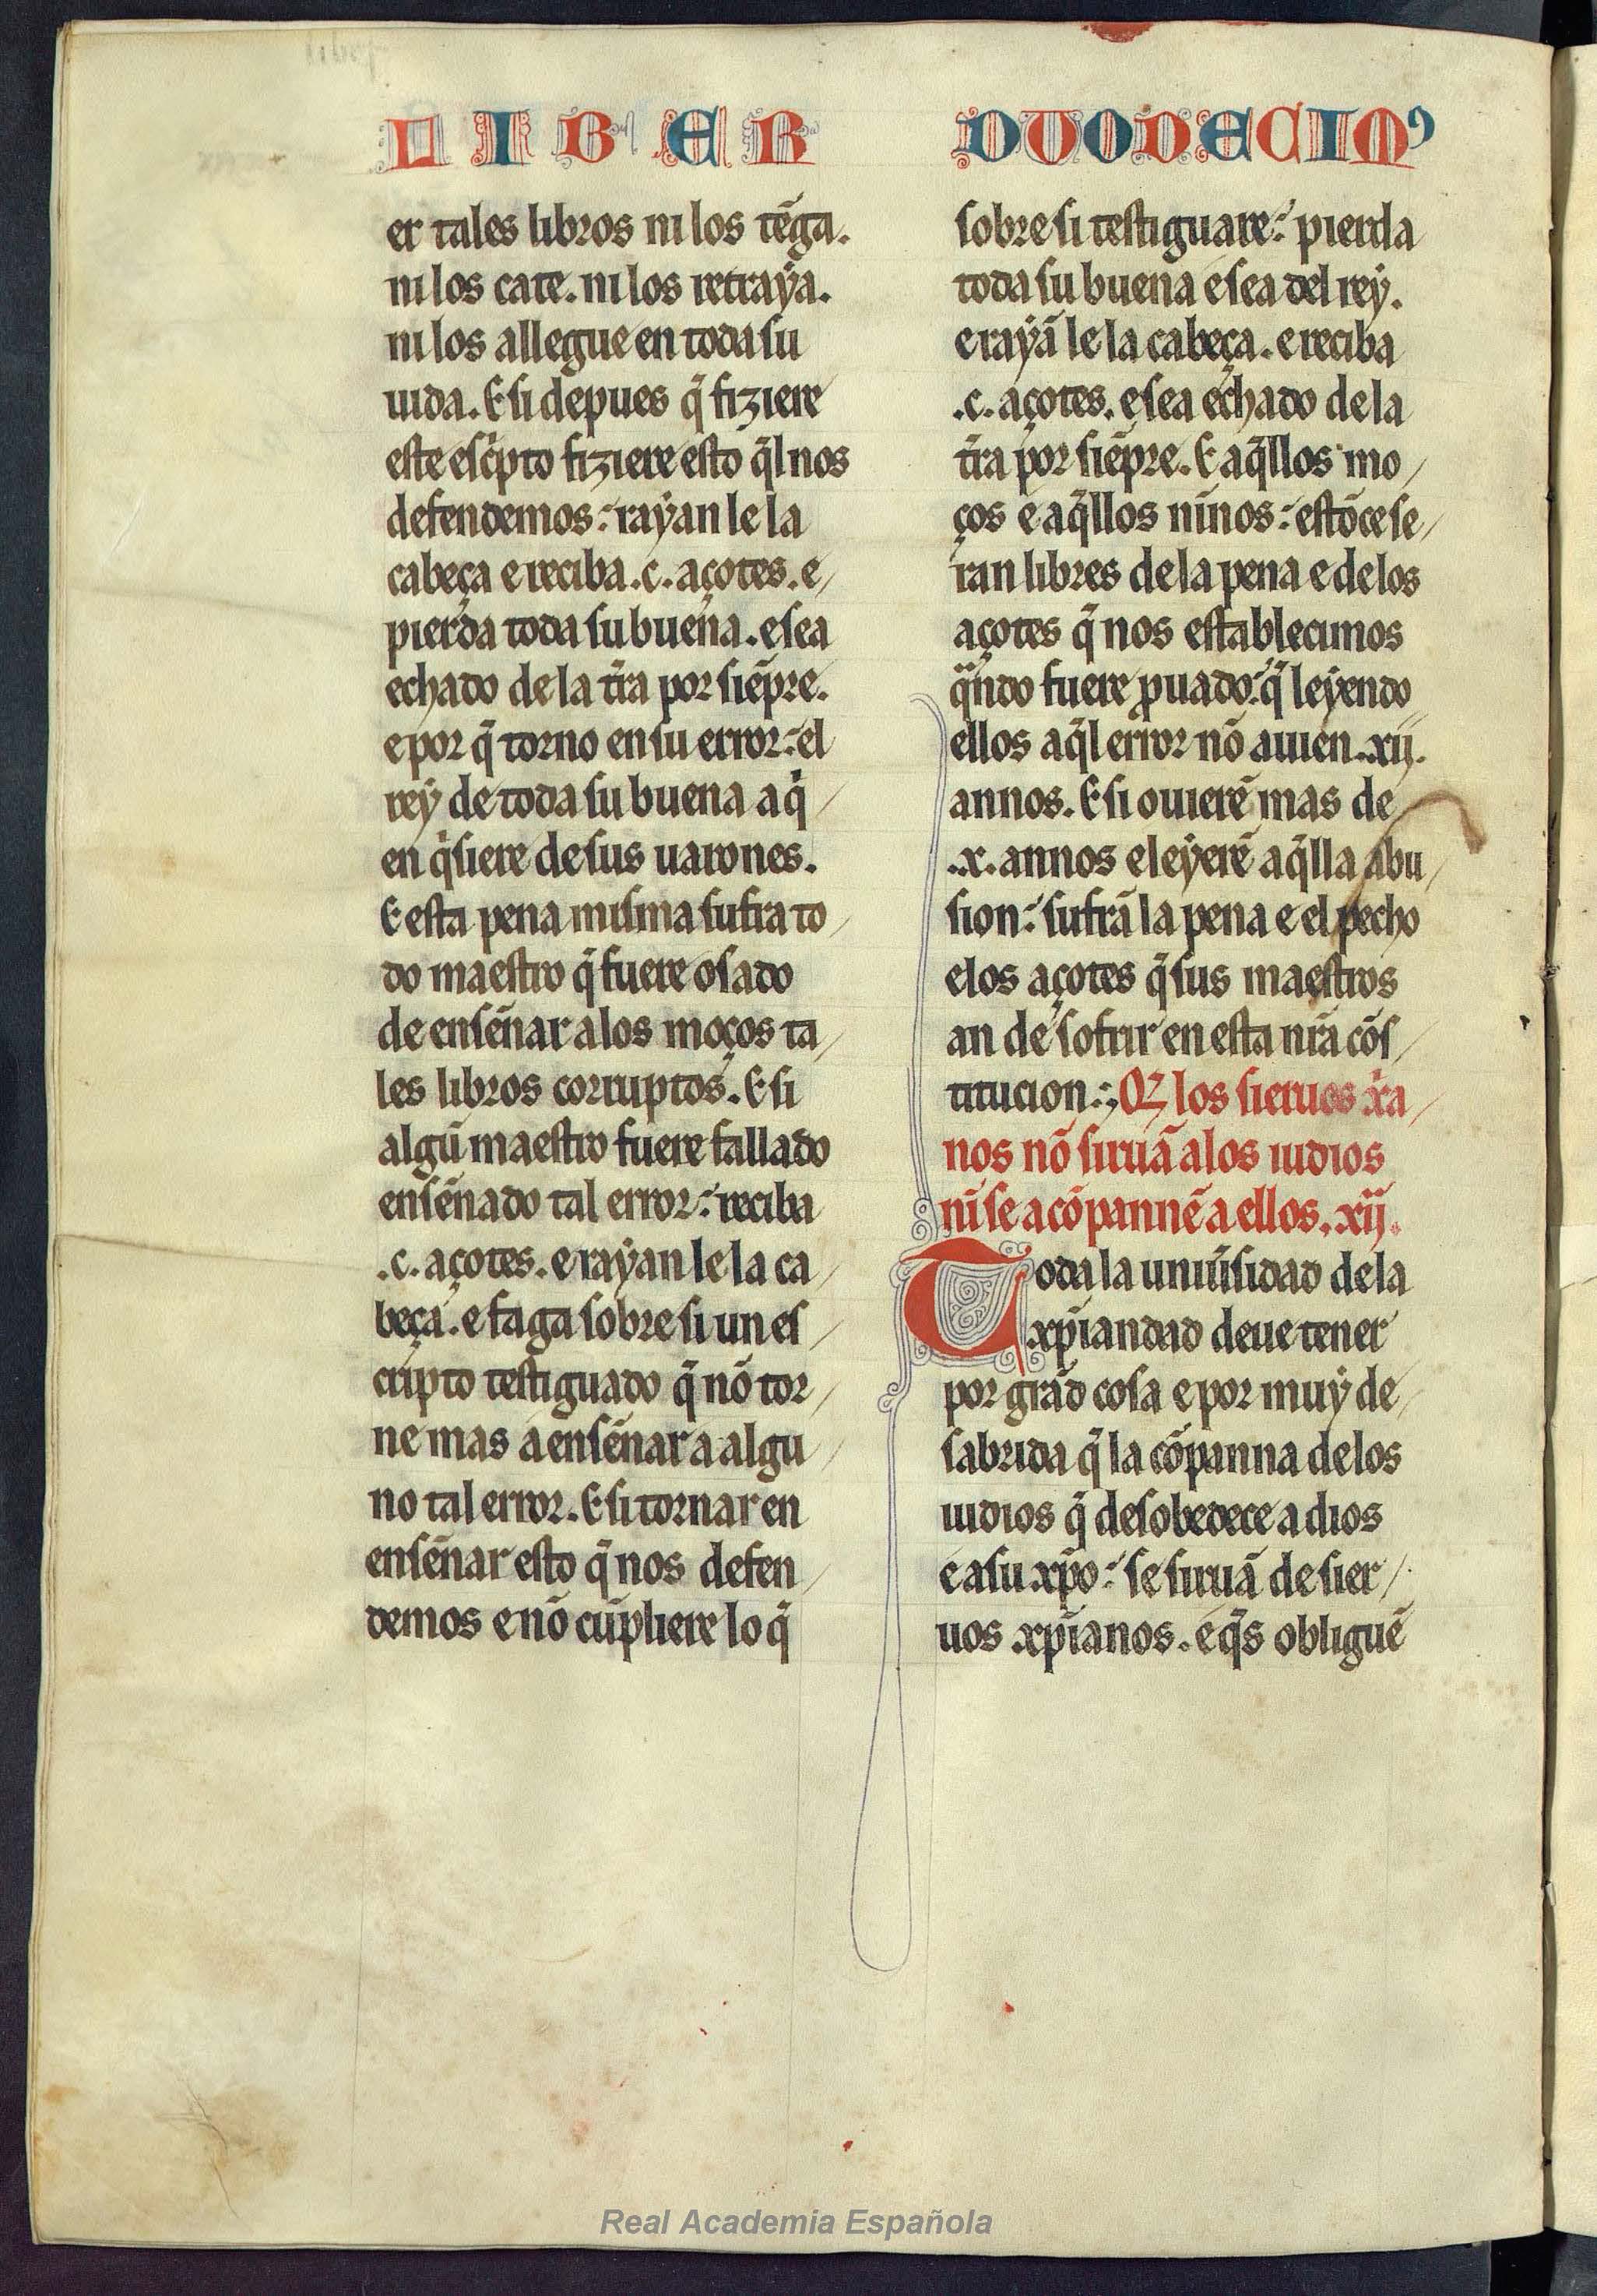 LIBER
er tales libros ni los tẽga.
ni los cate. ni los retraya.
ni los allegue en toda su
uida. E si depues q̃ fiziere
este escͥpto fiziere esto q̃l nos
defendemos: rayan le la
cabeça e reciba .c. açotes. e
pierda toda su buena. e sea
echado de la tr̃a por siẽpre.
e por q̃ torno en su error: el
rey de toda su buena a qͥ
en qͥsiere de sus uarones.
E esta pena misma sufra to
do maestro q̃ fuere osado
de ensẽnar a los moços ta
les libros corruptos. E si
algũ maestro fuere fallado
ensẽnado tal error: reciba
.c. açotes. e rayan le la ca
beça. e faga sobre si un es
cͥpto testiguado q̃ nõ tor
ne mas a ensẽnar a algu
no tal error. E si tornar en
ensẽnar esto q̃ nos defen
demos e nõ cũpliere lo q̃
DUODECIMꝰ
sobre si testiguare: pierda
toda su buena e sea del rey.
e rayã le la cabeça. e reciba
.c. açotes. e sea echado de la
tr̃a por siẽpre. E aq̃llos mo
ços e aq̃llos nĩnos: estõce se
ran libres de la pena e de los
açotes q̃ nos establecimos
qͣndo fuere ꝓuado: q̃ leyendo
ellos aq̃l error nõ auien .xij.
annos. E si ouierẽ mas de
.x. annos e leyerẽ aq̃lla abu
sion: sufrã la pena e el pecho
e los açotes q̃ sus maestros
an de sofrir en esta nr̃a cõs
titucion:; Qꝛ los sieruos xͥa
nos nõ siruã a los iudios
nĩ se acõpannẽ a ellos. xij.
Toda la uniũsidad de la
xp̃iandad deue tener
por grãd cosa e por muy de
sabrida q̃ la cõpanna de los
iudios q̃ desobedece a dios
e a su xp̃o: se siruã de sier
uos xp̃ianos. e q̃s obliguẽ
Real Academia Española